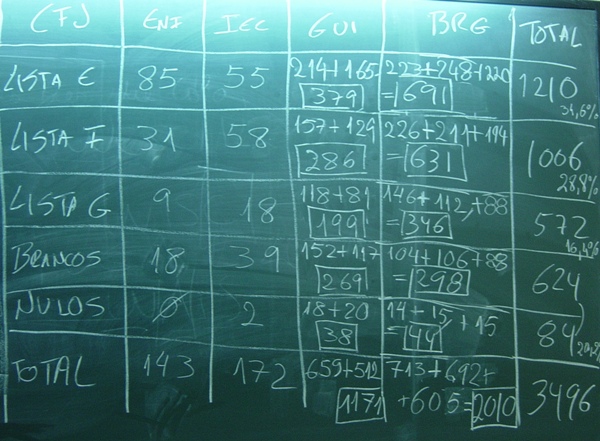 CFJ ENF IEC GUI BRG TOTAL
LISTA E 85 55 214+165 223+248+220 1210
379 =691 34,6%
LISTA F 31 58 157+129 226+211+194 1006
286 =631 28,8%
LISTA G 9 18 118+81 146+112+88 572
199 =346 16,4%
BRANCOS 18 39 152+117 104+106+88 624
269 =298
NULOS Ø 2 18+20 14+15+15 84
38 =44
TOTAL 143 172 659+512 713+692+ 3496
1171 +605=2010